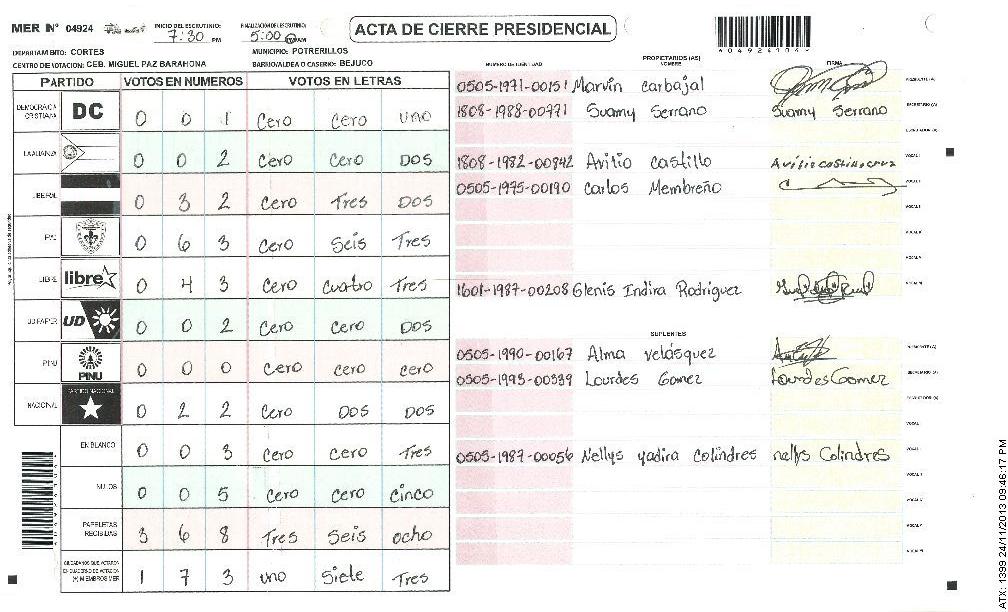 MER Nº 04924 INICIO DEL ESCRUTINIO: 7:30 PM FINALIZACION DEL ESCRUTINIO: 5:00 ACTA DE CIERRE PRESIDENCIAL
DEPARTAMENTO: CORTES MUNICIPIO: POTRERILLOS
CENTRO DE VOTACION: CEB. MIGUEL PAZ BARAHONA BARRIO/ALDEA O CASERIO: BEJUCO
PARTIDO VOTOS EN NUMEROS VOTOS EN LETRAS
DEMOCRACIA CRISTIANA DC 0 0 1 Cero Cero uno
LA ALIANZA 0 0 2 Cero Cero DOS
LIBERAL 0 3 2 Cero Tres DOS
PAC 0 6 3 Cero Seis Tres
LIBRE libre 0 4 3 Cero Cuatro Tres
UD FAPER UD 0 0 2 Cero Cero DOS
PINU PINU 0 0 0 Cero cero cero
NACIONAL PARTIDO NACIONAL 0 2 2 Cero DOS DOS
EN BLANCO 0 0 3 Cero Cero Tres
NULOS 0 0 5 Cero Cero cinco
PAPELETAS RECIBIDAS 3 6 8 Tres Seis ocho
CIUDADANOS QUE VOTARON EN CUADERNO DE VOTACION (+) MIEMBROS MER 1 7 3 uno Siete Tres
NUMERO DE IDENTIDAD PROPIETARIOS (AS) NOMBRE FIRMA
0505-1971-00151 Marvin Carbajal
1808-1988-00771 Suamy Serrano Suamy Serrano SECRETARIO (A)
ESCRUTADOR (A)
1808-1982-00842 Avilio Castillo Avilio castillo cruz VOCAL I
0505-1975-00190 Carlos Membreño
1601-1987-00208 Glenis Indira Rodriguez
SUPLENTES
0505-1990-00167 Alma Velásquez
0505-1993-00339 Lourdes Gomez Lourdes Gomez SECRETARIO (A)
ESCRUTADOR (A)
0505-1987-00056 Nellys yadira Colindres nellys Colindres
ATX: 1399 24/11/2013 09:46:17 PM